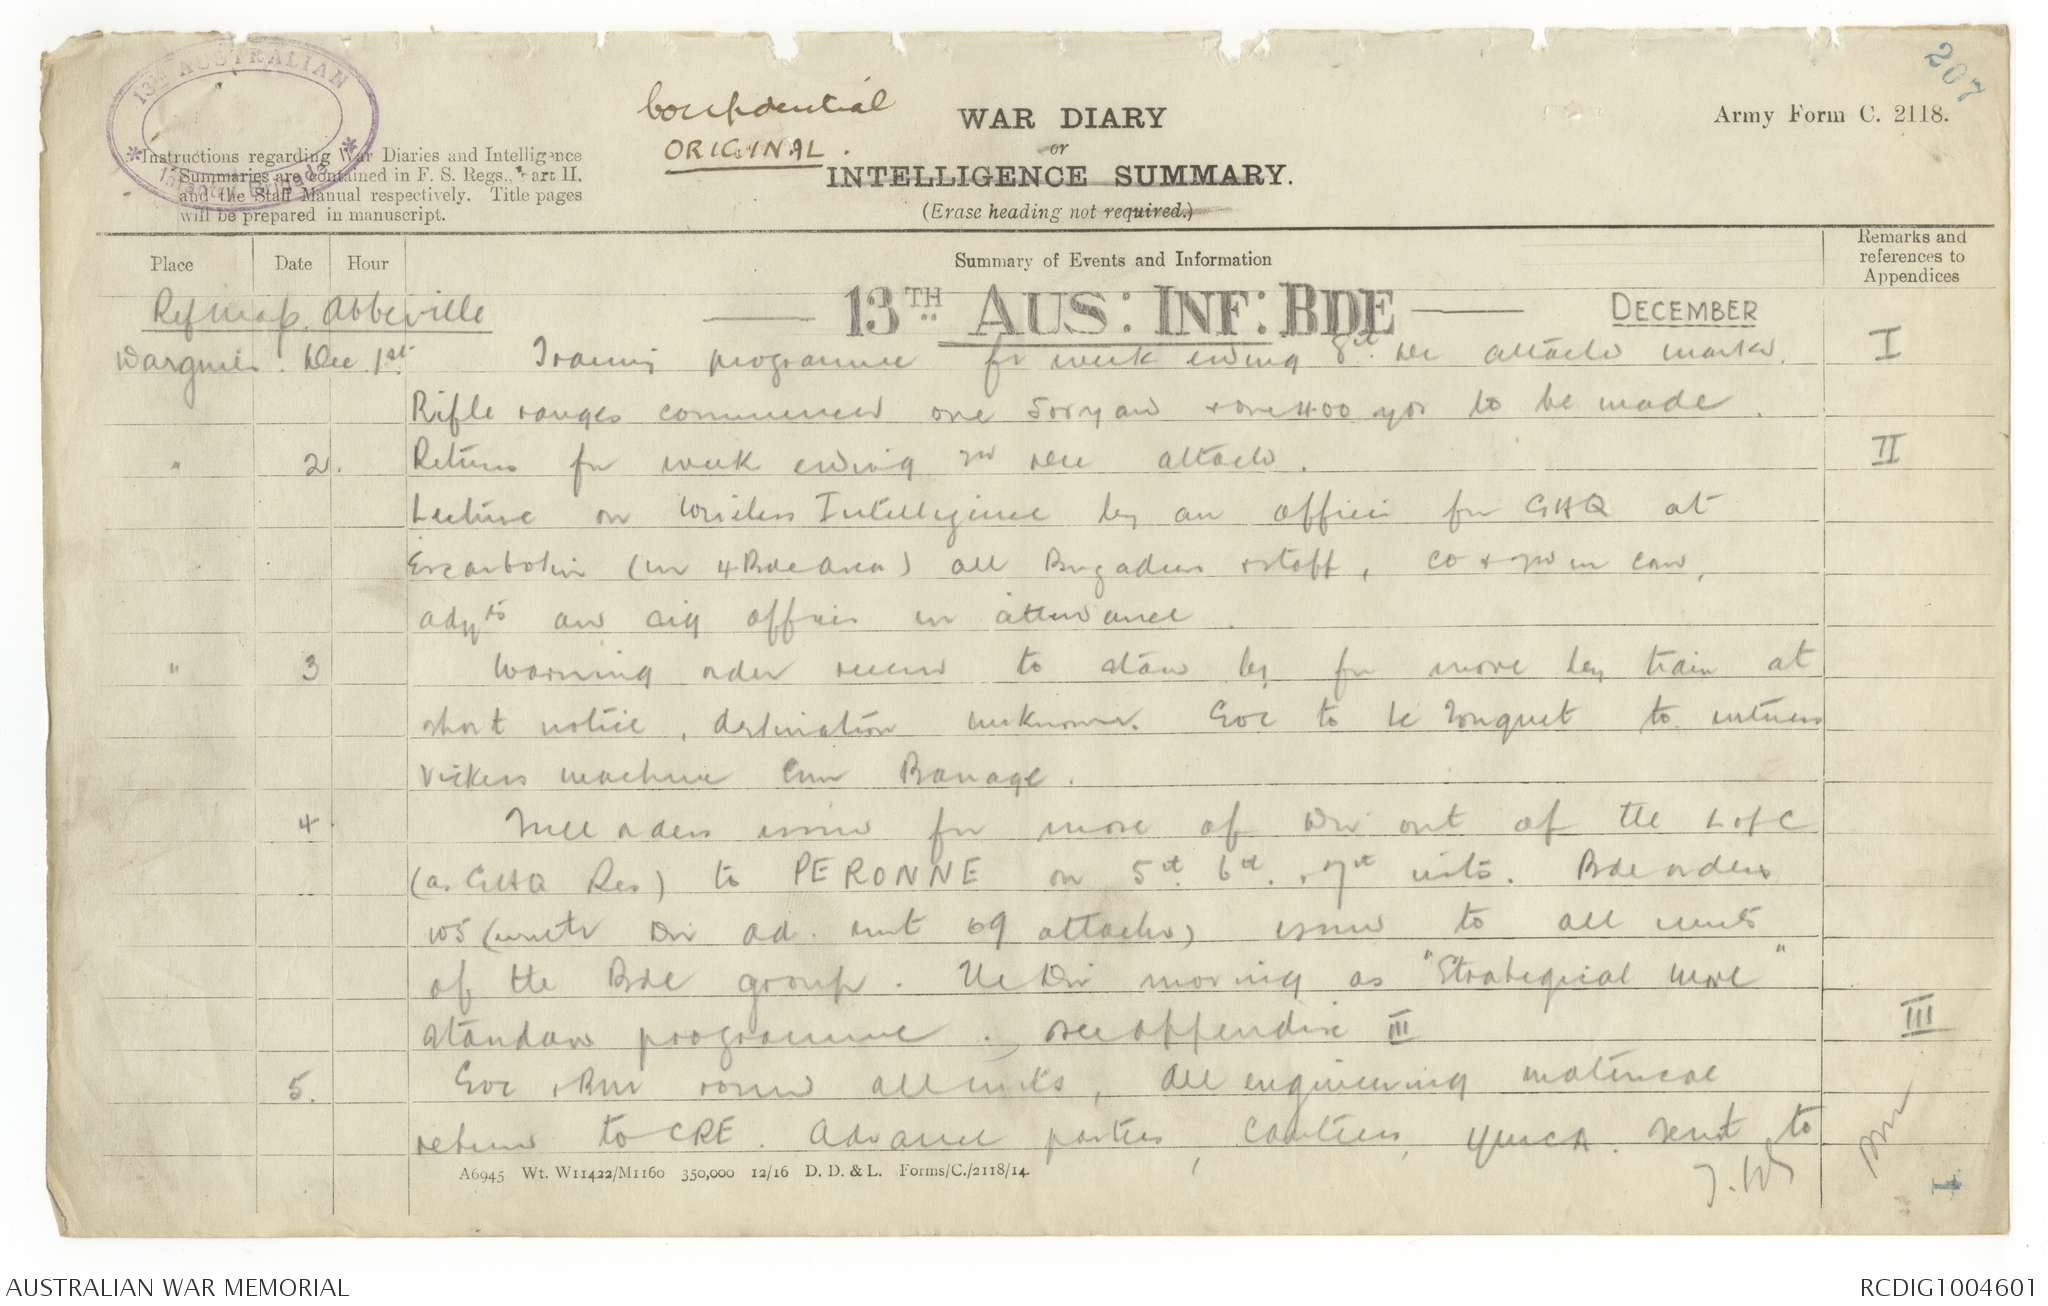 207
13TH AUSTRALIAN
Infantry Brigade
Confidential
ORIGINAL.
WAR DIARY
or
INTELLIGENCE SUMMARY.
(Erase heading not required.)
Army Form C. 2118.
Instructions regarding War Diaries and Intelligence
Summaries are contained in F. S. Regs., Part II.
and the Staff Manual respectively. Title pages
will be prepared in manuscript.
Place Date Hour Summary of Events and Information Remarks and references to Appendices
Ref Map. Abbeville
— 13TH AUS: INF: BDE — DECEMBER
Wargnies. Dec 1st. Training programme for week ending 8th Dec attached marked. I
Rifle ranges commenced one 500 yard + one 400 yds to be made.
" 2. Returns for week ending Dec attached. II
Lecture on Wireless Intelligence by an officer from GHQ at
Escarbotin (in 4 Bde Area) all Brigadiers + staff, CO + 2nd in com,
adjts and sig officers in attendance.
" 3 Warning order received to stand by for move by train at
short notice, destination unknown. GOC to le Touquet to witness
Vickers machine Gun Barrage.
4 orders issued for move of Div out of the L of C
(as GHQ Res) to PERONNE on 5th. 6th. + 7th insts. Bde orders
105 (with Div ad. inst 69 attached) issued to all units
of the Bde group. The Div moving as "Strategical Move"
standard programme. see appendix III III
5. GOC + BM round all units, all engineering material
returned to CRE. Advance parties, Canteens, YMCA. sent to
A6945 Wt. W11422/M1160 350,000 12/16 D. D. & L. Forms/C./2118/14.
1
AUSTRALIAN WAR MEMORIAL
RCDIG1004601